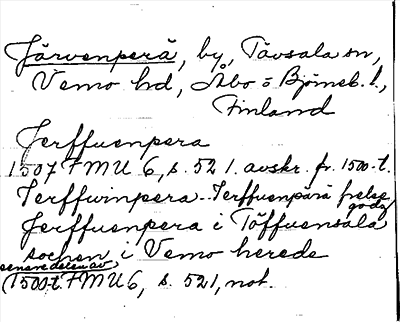 Järvenperä, by, Tövsala sn,
Vemo hd, Åbo o Björneb. l.,
Finland
Jerffuenpera
1507 FMU 6, s. 521. avskr. fr. 1500-t.
Jerffwinpera - Jerffuenpärä frelse
godz
Jerffuenpera i Töffuensala
sochen i Vemo herede
senare delen av
(1500-t. FMU 6, s. 521, not.